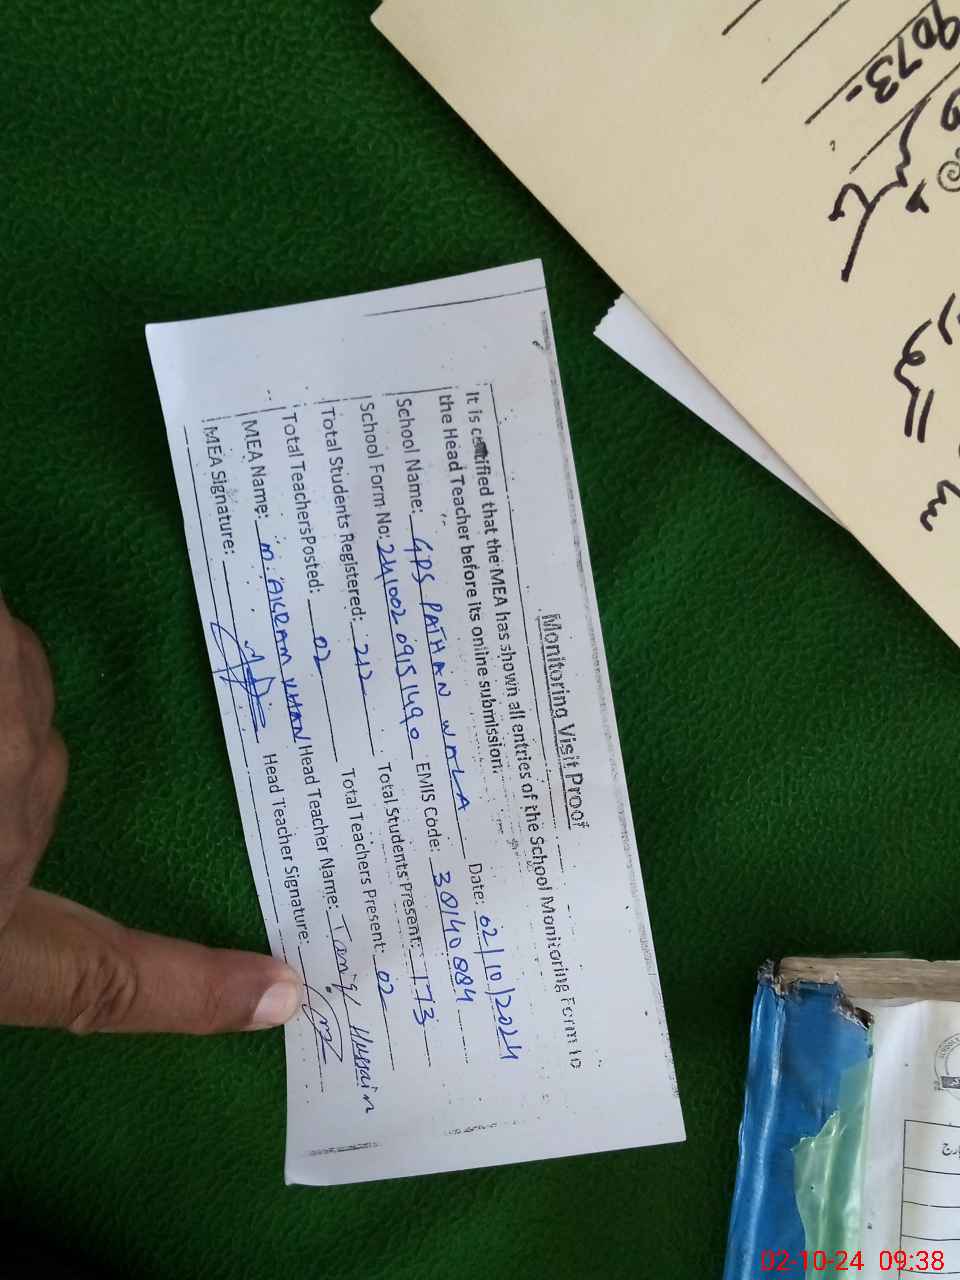 Monitoring Visit Proof
It is certified that the MEA has shown all entries of the School Monitoring Form to
the Head Teacher before its online submission.
School Name: GPS PATHAN WALA Date: 02/10/2024
School Form No: 241002 0915 1490 EMIS Code: 38140884
Total Students Registered: 212 Total Students Present: 173
Total Teachers Posted: 02 Total Teachers Present: 02
MEA Name: M. AKRAM KHAN Head Teacher Name: Tariq Hussain
MEA Signature: Head Teacher Signature:
9073-
02-10-24 09:38